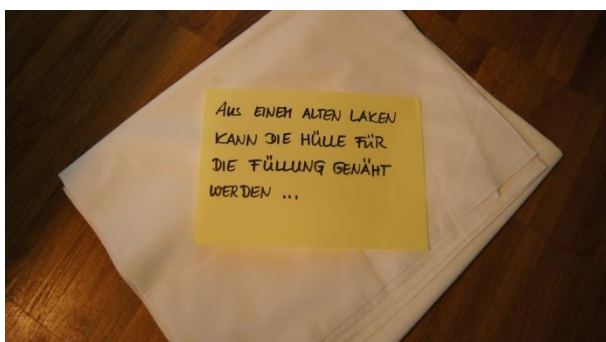 Aus EINEM ALTEN LAKEN
KANN DIE HÜLLE FÜR
DIE FÜLLUNG GENÄHT
WERDEN ...